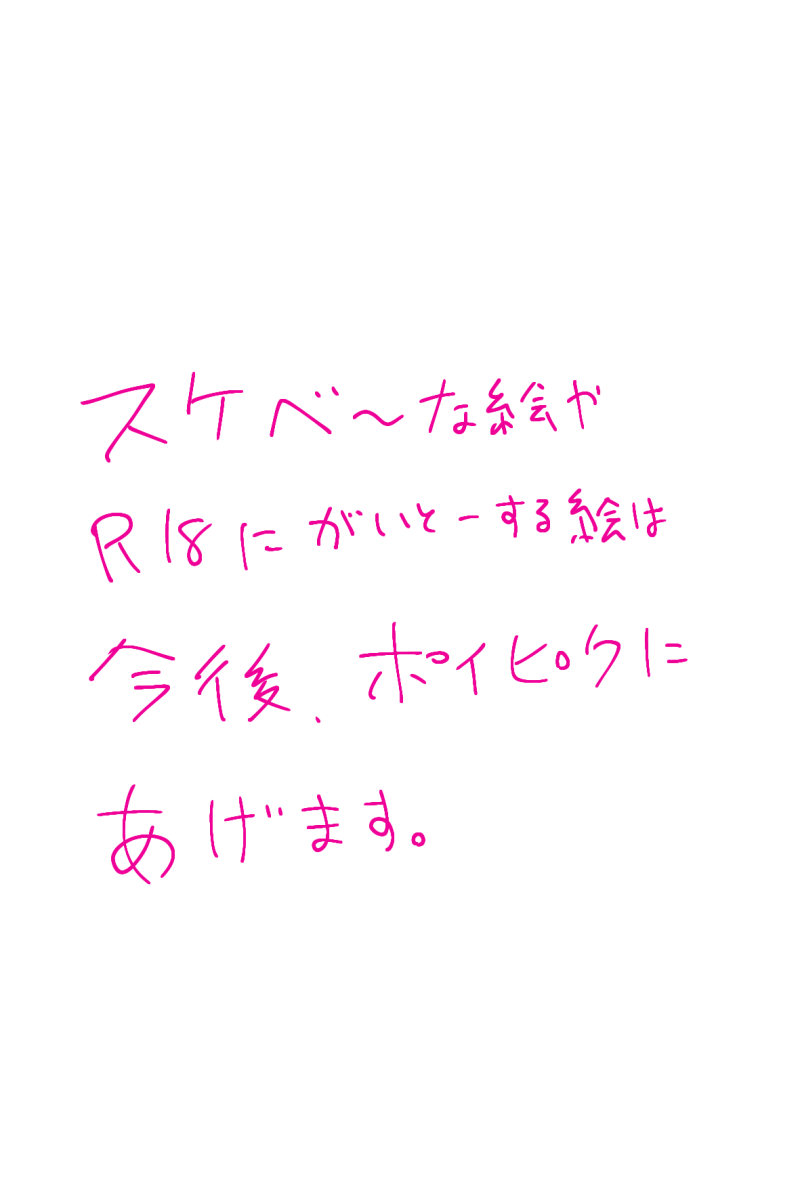 スケベ～な絵や
R18にがいとーする絵は
今後、ポイピクに
あげます。